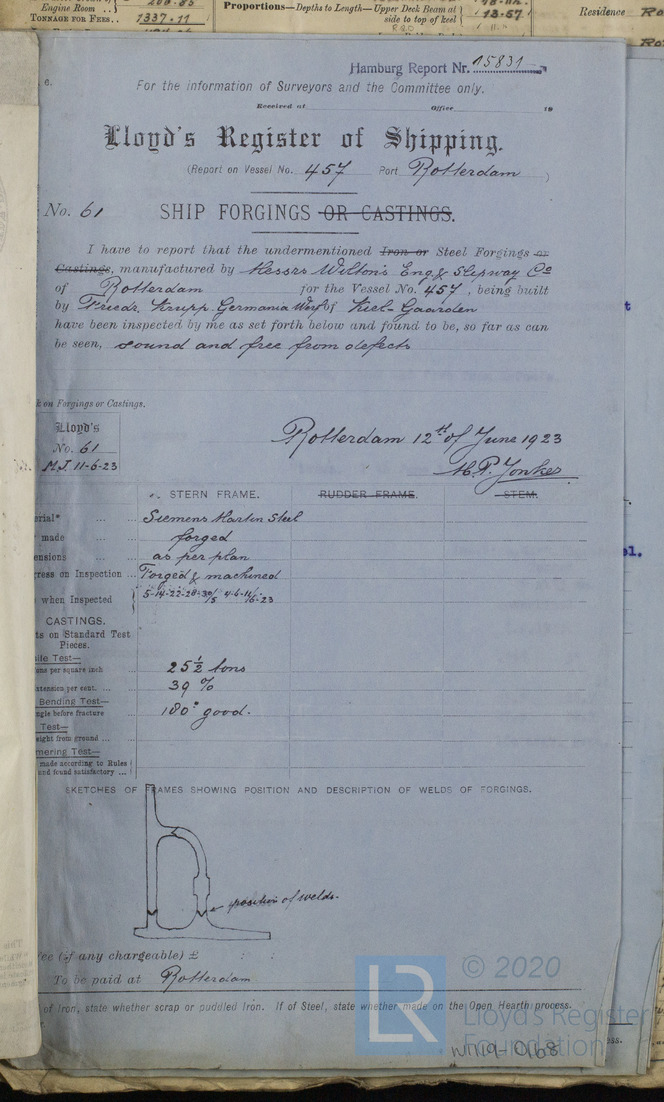 Engine Room
TONNAGE FOR FEES.. 1337.11
Proportions—Depths to Length—Upper Deck Beam at
side to top of keel
13.57
Residence
Hamburg Report Nr. 15831
For the information of Surveyors and the Committee only.
Received at Office 19
Lloyd's Register of Shipping.
(Report on Vessel No. 457 Port Rotterdam )
No. 61 SHIP FORGINGS OR CASTINGS.
I have to report that the undermentioned Iron or Steel Forgings or
Castings, manufactured by Messrs Wilton's Eng. & Slipway Co
of Rotterdam for the Vessel No. 457, being built
by Friedr. Krupp Germania Werft of Kiel-Gaarden
have been inspected by me as set forth below and found to be, so far as can
be seen, sound and free from defects
on Forgings or Castings.
Lloyd's
No. 61
M.J. 11-6-23
Rotterdam 12th of June 1923
M.P. Jonker
STERN FRAME. RUDDER FRAME. STEM.
erial* ... ... Siemens Martin Steel
made ... forged
ensions ... as per plan
gress on Inspection ... Forged & machined
when Inspected
CASTINGS.
ts on Standard Test
Pieces.
ile Test—
ons per square inch 25½ tons
xtension per cent. ... ... 39 %
Bending Test—
ngle before fracture 180° good.
Test—
eight from ground ... ...
mering Test—
made according to Rules
and found satisfactory ...
SKETCHES OF FRAMES SHOWING POSITION AND DESCRIPTION OF WELDS OF FORGINGS.
position of welds.
Fee (if any chargeable) £ : :
To be paid at Rotterdam
of Iron, state whether scrap or puddled Iron. If of Steel, state whether made on the Open Hearth process.
LR
© 2020
Lloyd's Register
Foundation
W1119-0168